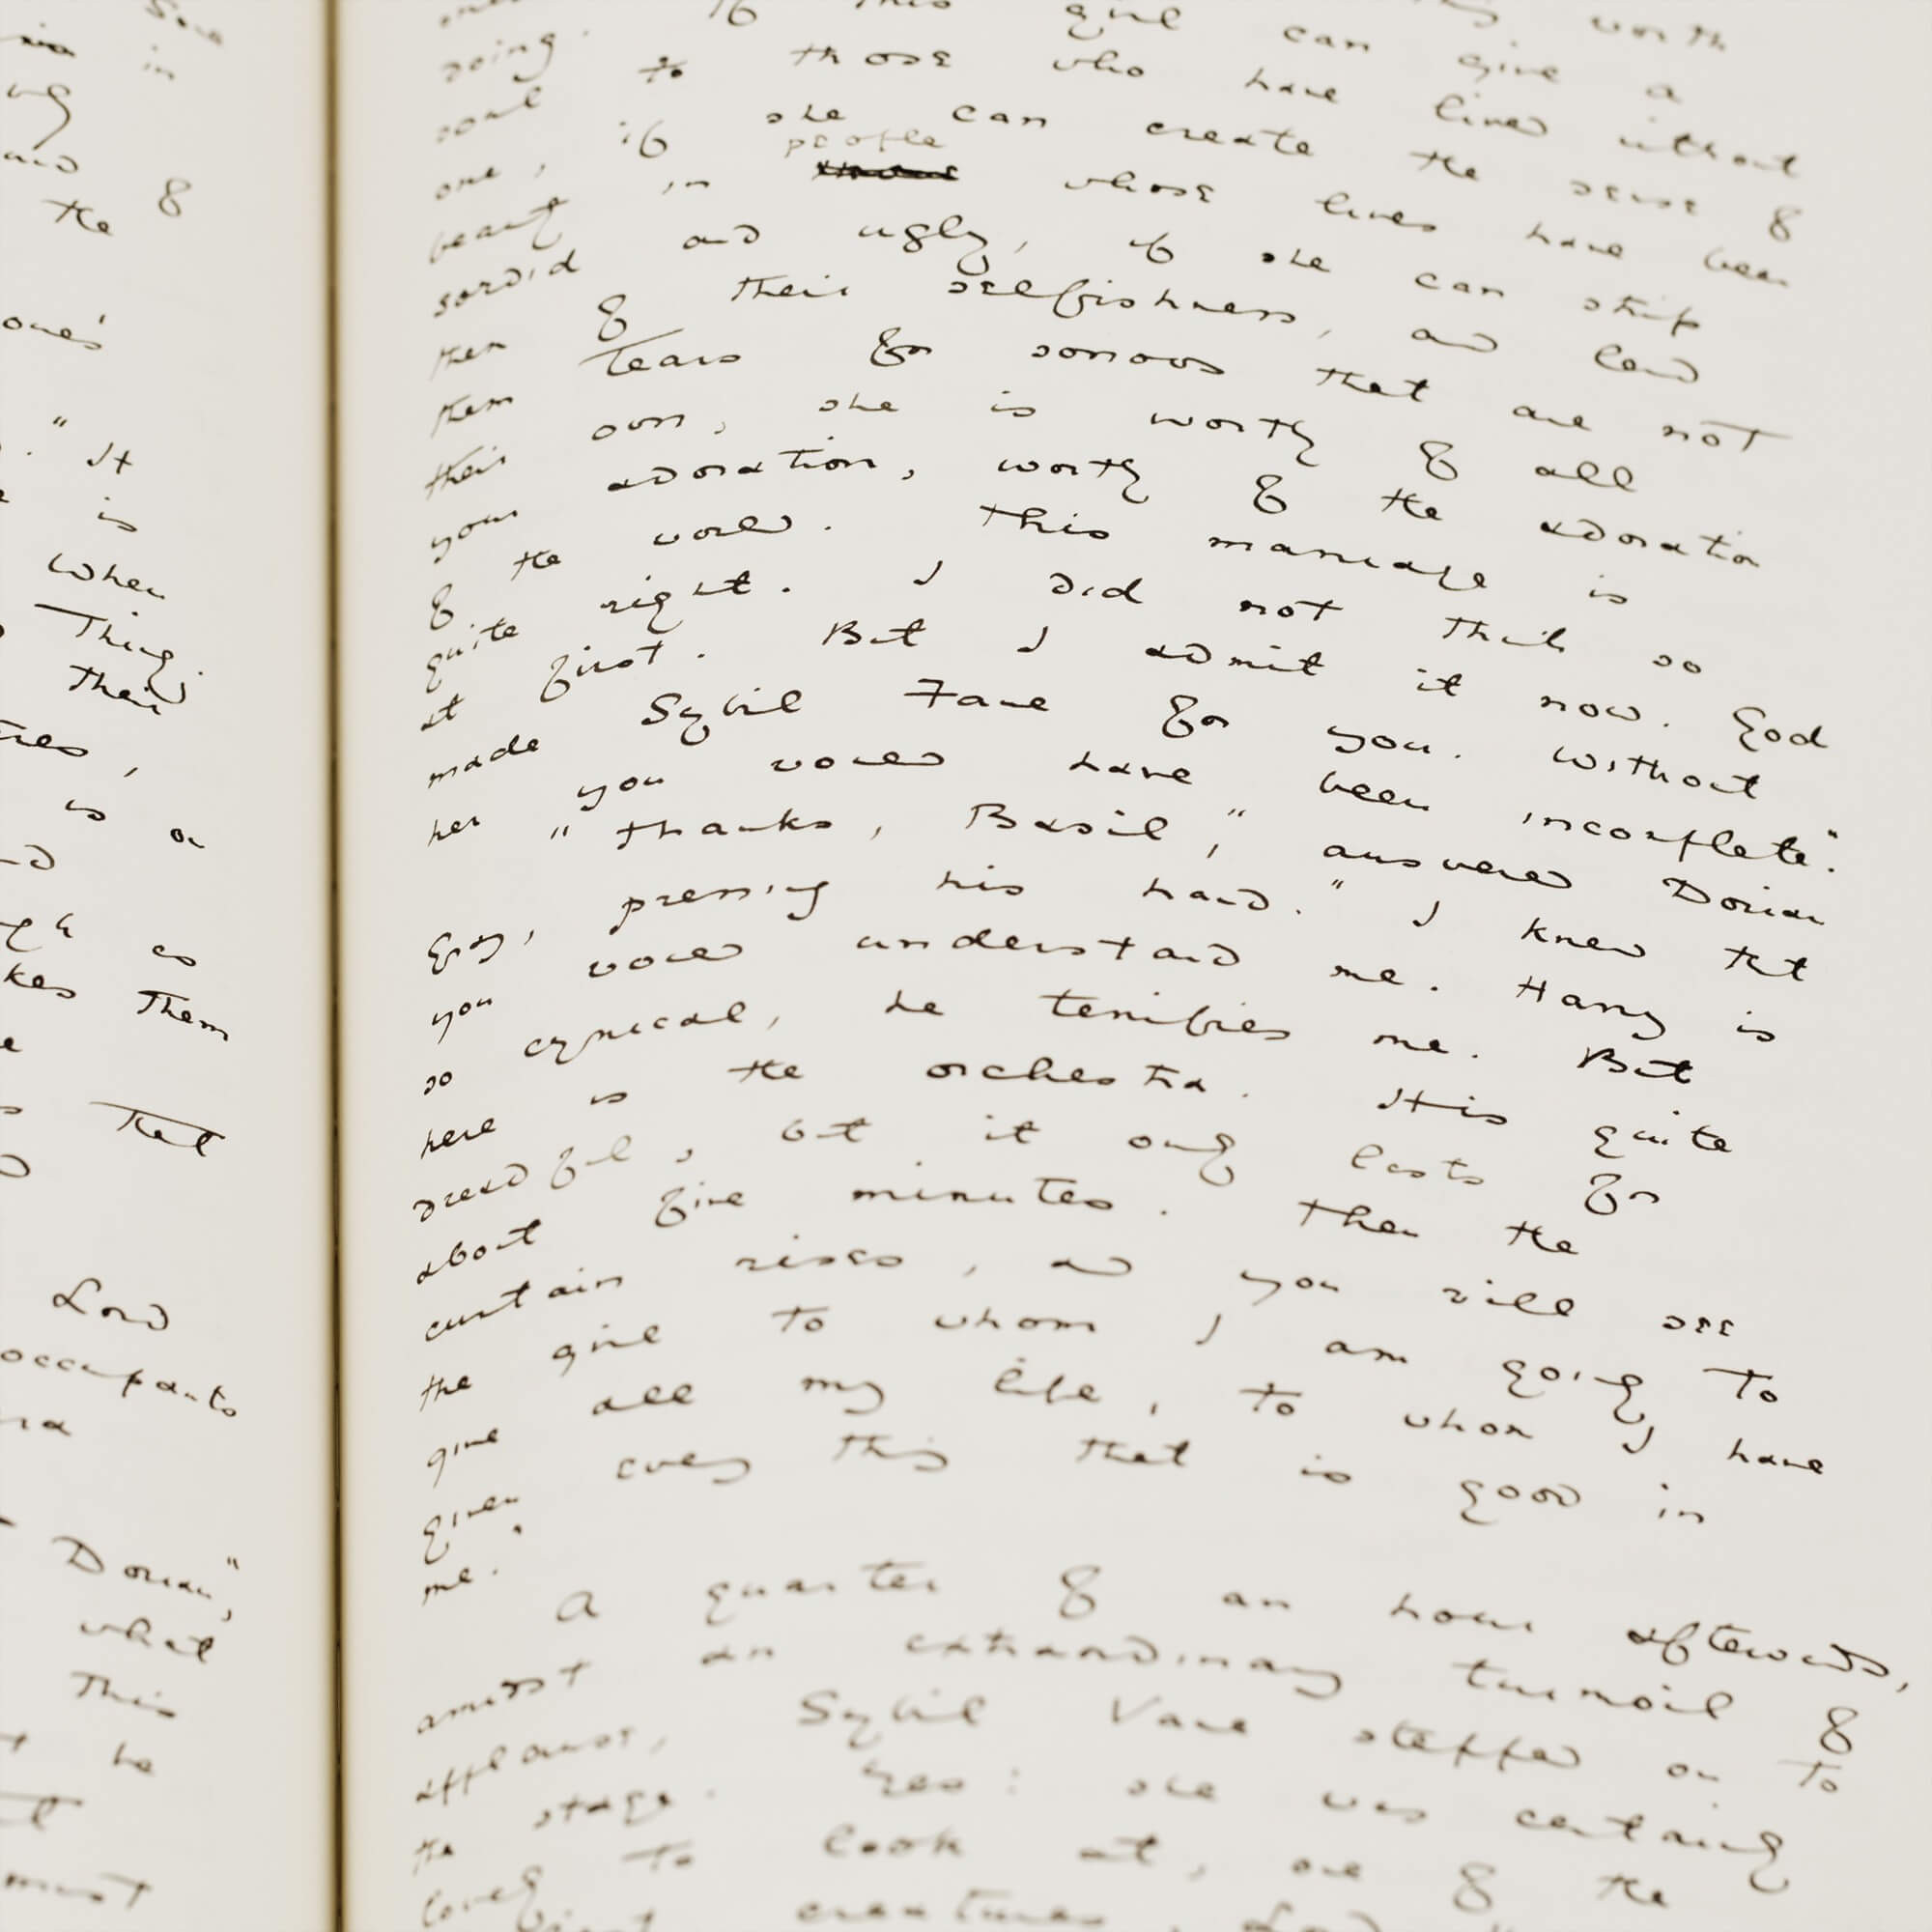 in
of
the
one's
." It
is
when
Thing
their
,
is a
as
them
that
Lord
occupants
Dorian",
what
This
he
must
worth
doing. If this girl can give a
soul to those who have lived without
one, if she can create the sense of
people
beauty in whose lives have been
sordid and ugly, if she can strip
them of their selfishness, and lend
them tears for sorrows that are not
their own, she is worthy of all
your adoration, worthy of the adoration
of the world. This marriage is
quite right. I did not think so
at first. But I admit it now. God
made Sybil Fane for you. Without
her you would have been incomplete".
"Thanks, Basil," answered Dorian
Gray, pressing his hand. "I knew that
you would understand me. Harry is
so cynical, he terrifies me. But
here is the orchestra. It is quite
dreadful, but it only lasts for
about five minutes. Then the
curtain rises, and you will see
the girl to whom I am going to
give all my life, to whom I have
given every thing that is good in
me."
A quarter of an hour afterwards,
amidst an extraordinary turmoil of
applause, Sybil Vane stepped on to
the stage. Yes: she was certainly
lovely to look at, one of the
creatures, Lord